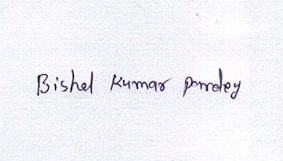 Bishal Kumar pandey